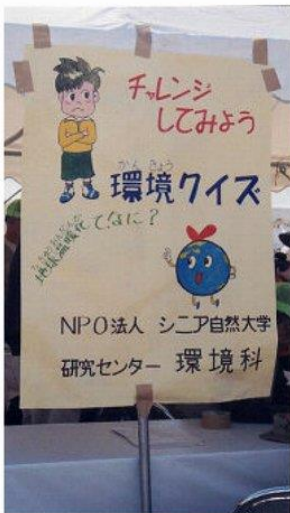 チャレンジ
してみよう
かんきょう
環境クイズ
ちきゅうおんだんか
地球温暖化てなに?
NPO法人 シニア自然大学
研究センター 環境科